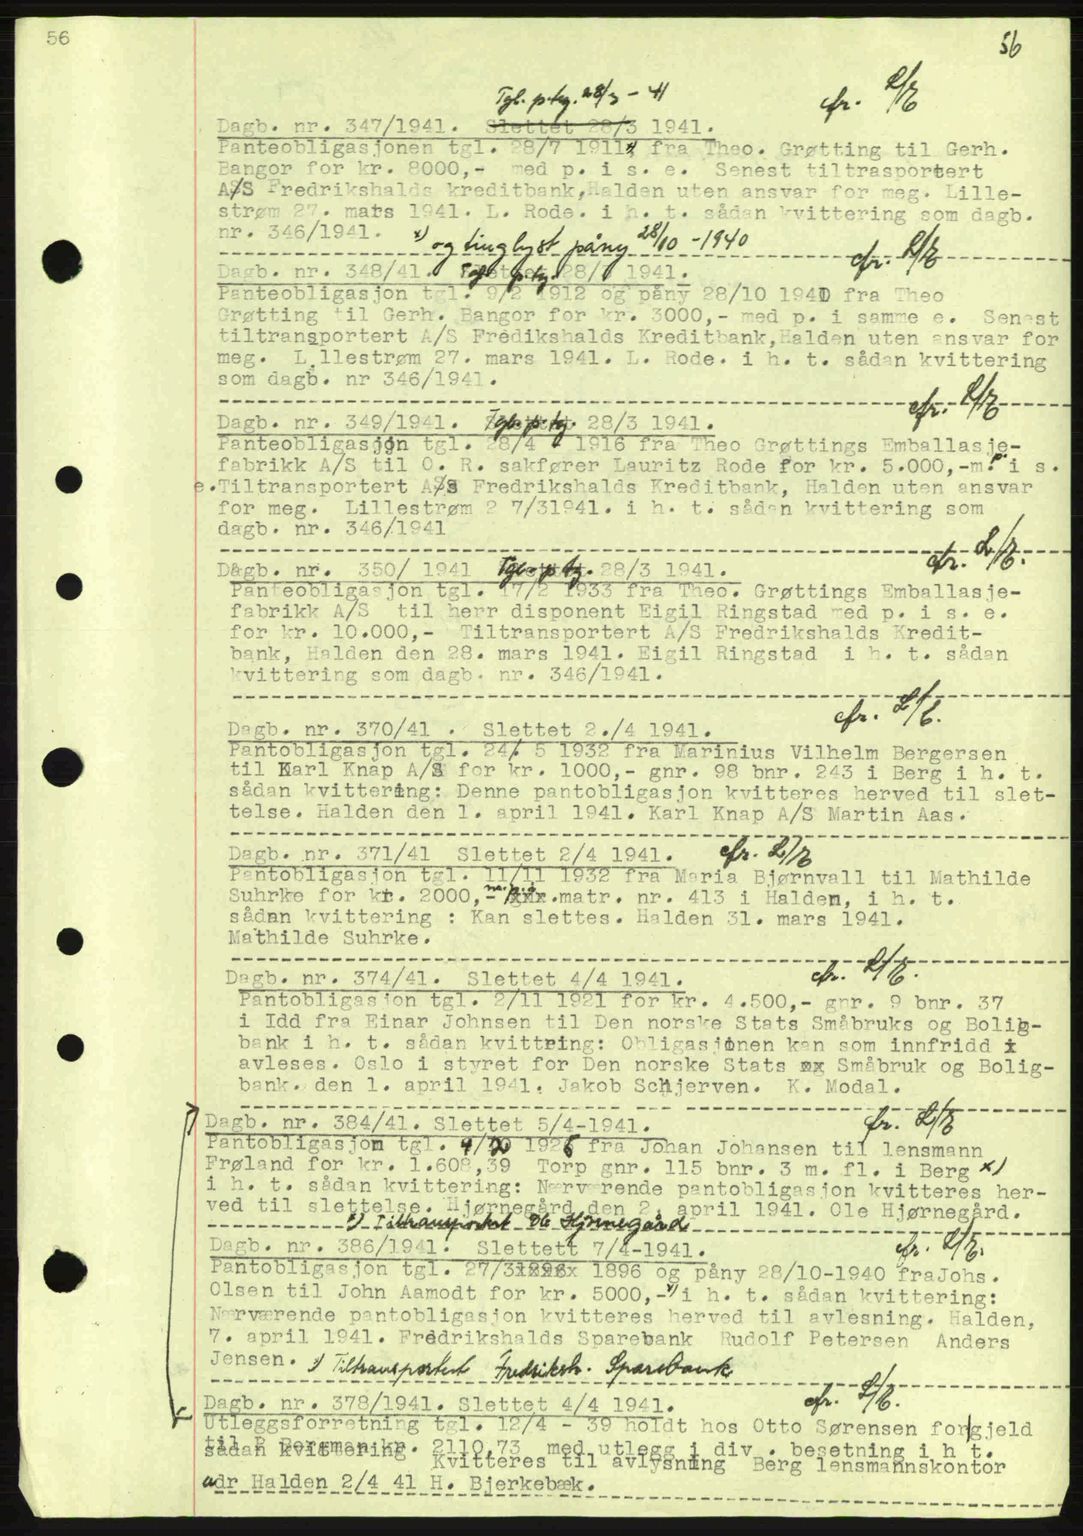 56
56
Tgl. p. tg. 28/3 - 41
cfr. L/E
Dagb. nr. 347/1941. Slettet 28/3 1941.
Panteobligasjonen tgl. 28/7 1911 x) fra Theo. Grøtting til Gerh.
Bangor for kr. 8000,- med p. i s. e. Senest tiltrasportert
A/S Fredrikshalds kreditbank,Halden uten ansvar for meg. Lille-
strøm 27. mars 1941. L. Rode. i h. t. sådan kvittering som dagb.
nr. 346/1941. x) og tinglyst påny 28/10 - 1940
cfr. L/E
Dagb. nr. 348/41. Tgl. p. tg. 28/3 1941.
Panteobligasjon tgl. 9/2 1912 og påny 28/10 1940 fra Theo
Grøtting til Gerh. Bangor for kr. 3000,- med p. i samme e. Senest
tiltransportert A/S Fredikshalds Kreditbank,Halden uten ansvar for
meg. Lillestrøm 27. mars 1941. L. Rode. i h. t. sådan kvittering
som dagb. nr 346/1941.
cfr. L/E
Dagb. nr. 349/1941. Tgl. p. tg. 28/3 1941.
Panteobligasjon tgl. 28/4 - 1916 fra Theo Grøttings Emballasje-
fabrikk A/S til O. R. sakfører Lauritz Rode for kr. 5.000,-m. p. i s.
e.Tiltransportert A/S Fredrikshalds Kreditbank, Halden uten ansvar
for meg. Lillestrøm 2 7/31941. i h. t. sådan kvittering som
dagb. nr. 346/1941
cfr. L/E.
Dagb. nr. 350/ 1941 Tgl. p. tg. 28/3 1941.
Panteobligasjon tgl. 17/2 1933 fra Theo. Grøttings Emballasje-
fabrikk A/S til herr disponent Eigil Ringstad med p. i s. e.
for kr. 10.000,- Tiltransportert A/S Fredrikshalds Kredit-
bank, Halden den 28. mars 1941. Eigil Ringstad i h. t. sådan
kvittering som dagb. nr. 346/1941.
cfr. L/E.
Dagb. nr. 370/41 . Slettet 2./4 1941.
Pantobligasjon tgl. 24/ 5 1932 fra Marinius Vilhelm Bergersen
til Karl Knap A/S for kr. 1000,- gnr. 98 bnr. 243 i Berg i h. t.
sådan kvittering: Denne pantobligasjon kvitteres herved til slet-
telse. Halden den 1. april 1941. Karl Knap A/S Martin Aas.
Dagb. nr. 371/41 Slettet 2/4 1941. cfr. L/E
Pantobligasjon tgl. 11/11 1932 fra Maria Bjørnvall til Mathilde
Suhrke for kr. 2000,- m. p. i matr. nr. 413 i Halden, i h. t.
sådan kvittering : Kan slettes. Halden 31. mars 1941.
Mathilde Suhrke.
Dagb. nr. 374/41. Slettet 4/4 1941. cfr. L/E.
Pantobligasjon tgl. 2/11 1921 for kr. 4.500,- gnr. 9 bnr. 37
i Idd fra Einar Johnsen til Den norske Stats Småbruks og Bolig-
bank i h. t. sådan kvittring: Obligasjonen kan som innfridd
avleses. Oslo i styret for Den norske Stats Småbruk og Bolig-
bank. den 1. april 1941. Jakob Schjerven. K. Modal.
Dagb. nr. 384/41. Slettet 5/4-1941. cfr. L/E
Pantobligasjon tgl. 4/20 1926 fra Johan Johansen til lensmann
Frøland for kr. 1.608,39 Torp gnr. 115 bnr. 3 m. fl. i Berg x)
i h. t. sådan kvittering: Nærværende pantobligasjon kvitteres her-
ved til slettelse. Hjørnegård den 2. april 1941. Ole Hjørnegård.
x) Tiltransportert Ole Hjørnegård
Dagb. nr. 386/1941. Slettett 7/4-1941. cfr. L/E.
Pantobligasjon tgl. 27/3 1896 og påny 28/10-1940 fraJohs.
Olsen til John Aamodt for kr. 5000,- x) i h. t. sådan kvittering:
Nærværende pantobligasjon kvitteres herved til avlesning. Halden,
7. april 1941. Fredrikshalds Sparebank Rudolf Petersen Anders
Jensen. x) Tiltransportert Fredriksh. Sparebank
Dagb. nr. 378/1941. Slettet 4/4 1941. cfr. L/E.
Utleggsforretning tgl. 12/4 - 39 holdt hos Otto Sørensen for gjeld
til P Bergman kr. 2110,73 med utlegg i div . besetning i h t.
sådan kvittering Kvitteres til avlysning Berg lensmannskontor
adr Halden 2/4 41 H. Bjerkebæk.